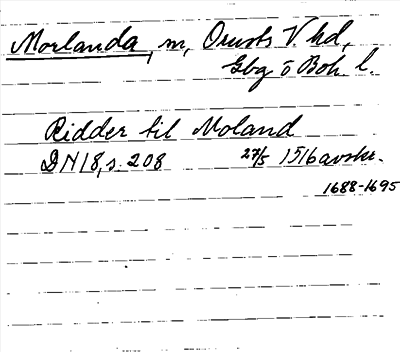 Morlanda, m, Orusts V. hd,
Gbg o Boh l.
Ridder til Moland
DN18, s. 208 27/5 1516 avskr.
1688-1695